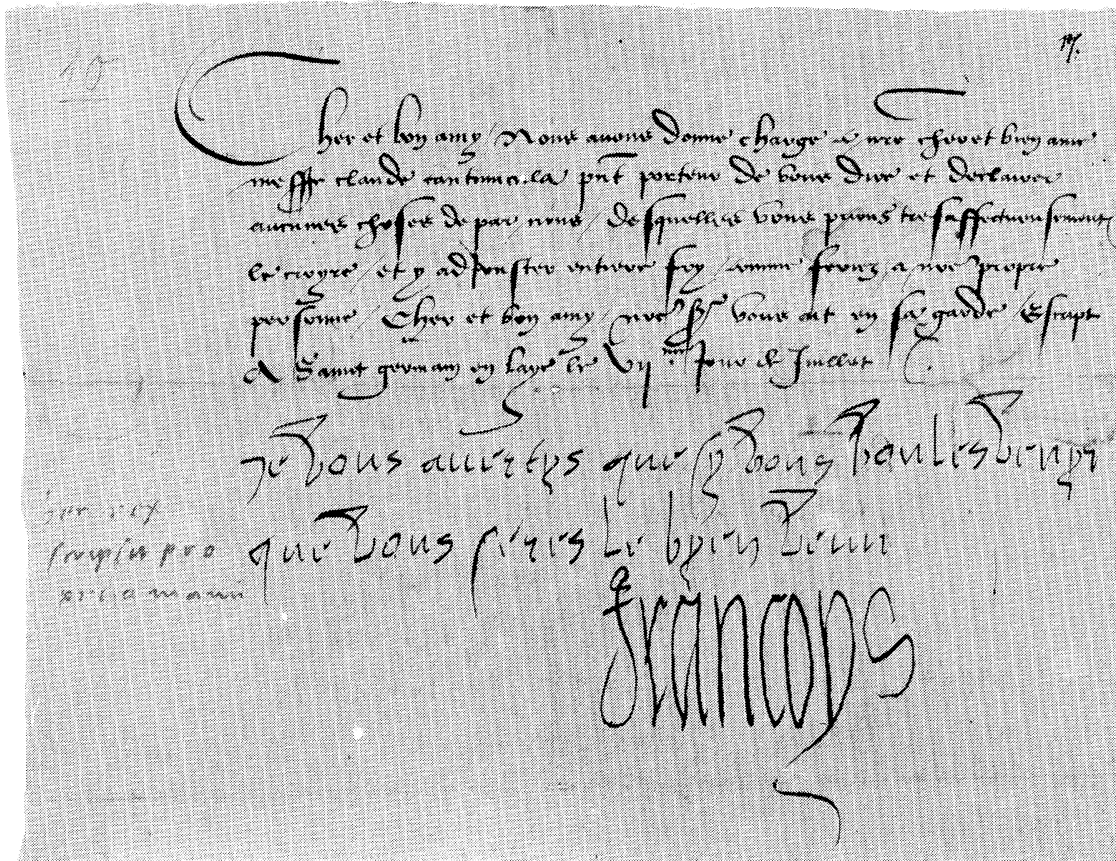 Cher et bon amy / Nous avons donne charge a nre cher et bien ame
messe claude cantiuncula pnt porteur de vous dire et declairer
aucunes choses de par nous / desquelles vous prions tresaffectueusement
le croyre / et y adiouster entiere foy / comme feriez a nre propre
personne / Cher et bon amy / nre sr vous ait en sa garde / Escript
A Saint germain en laye le vij me jour de Juillet
Je vous avertys que sy vous voulles venyr
que vous seres le byen venu
francoys